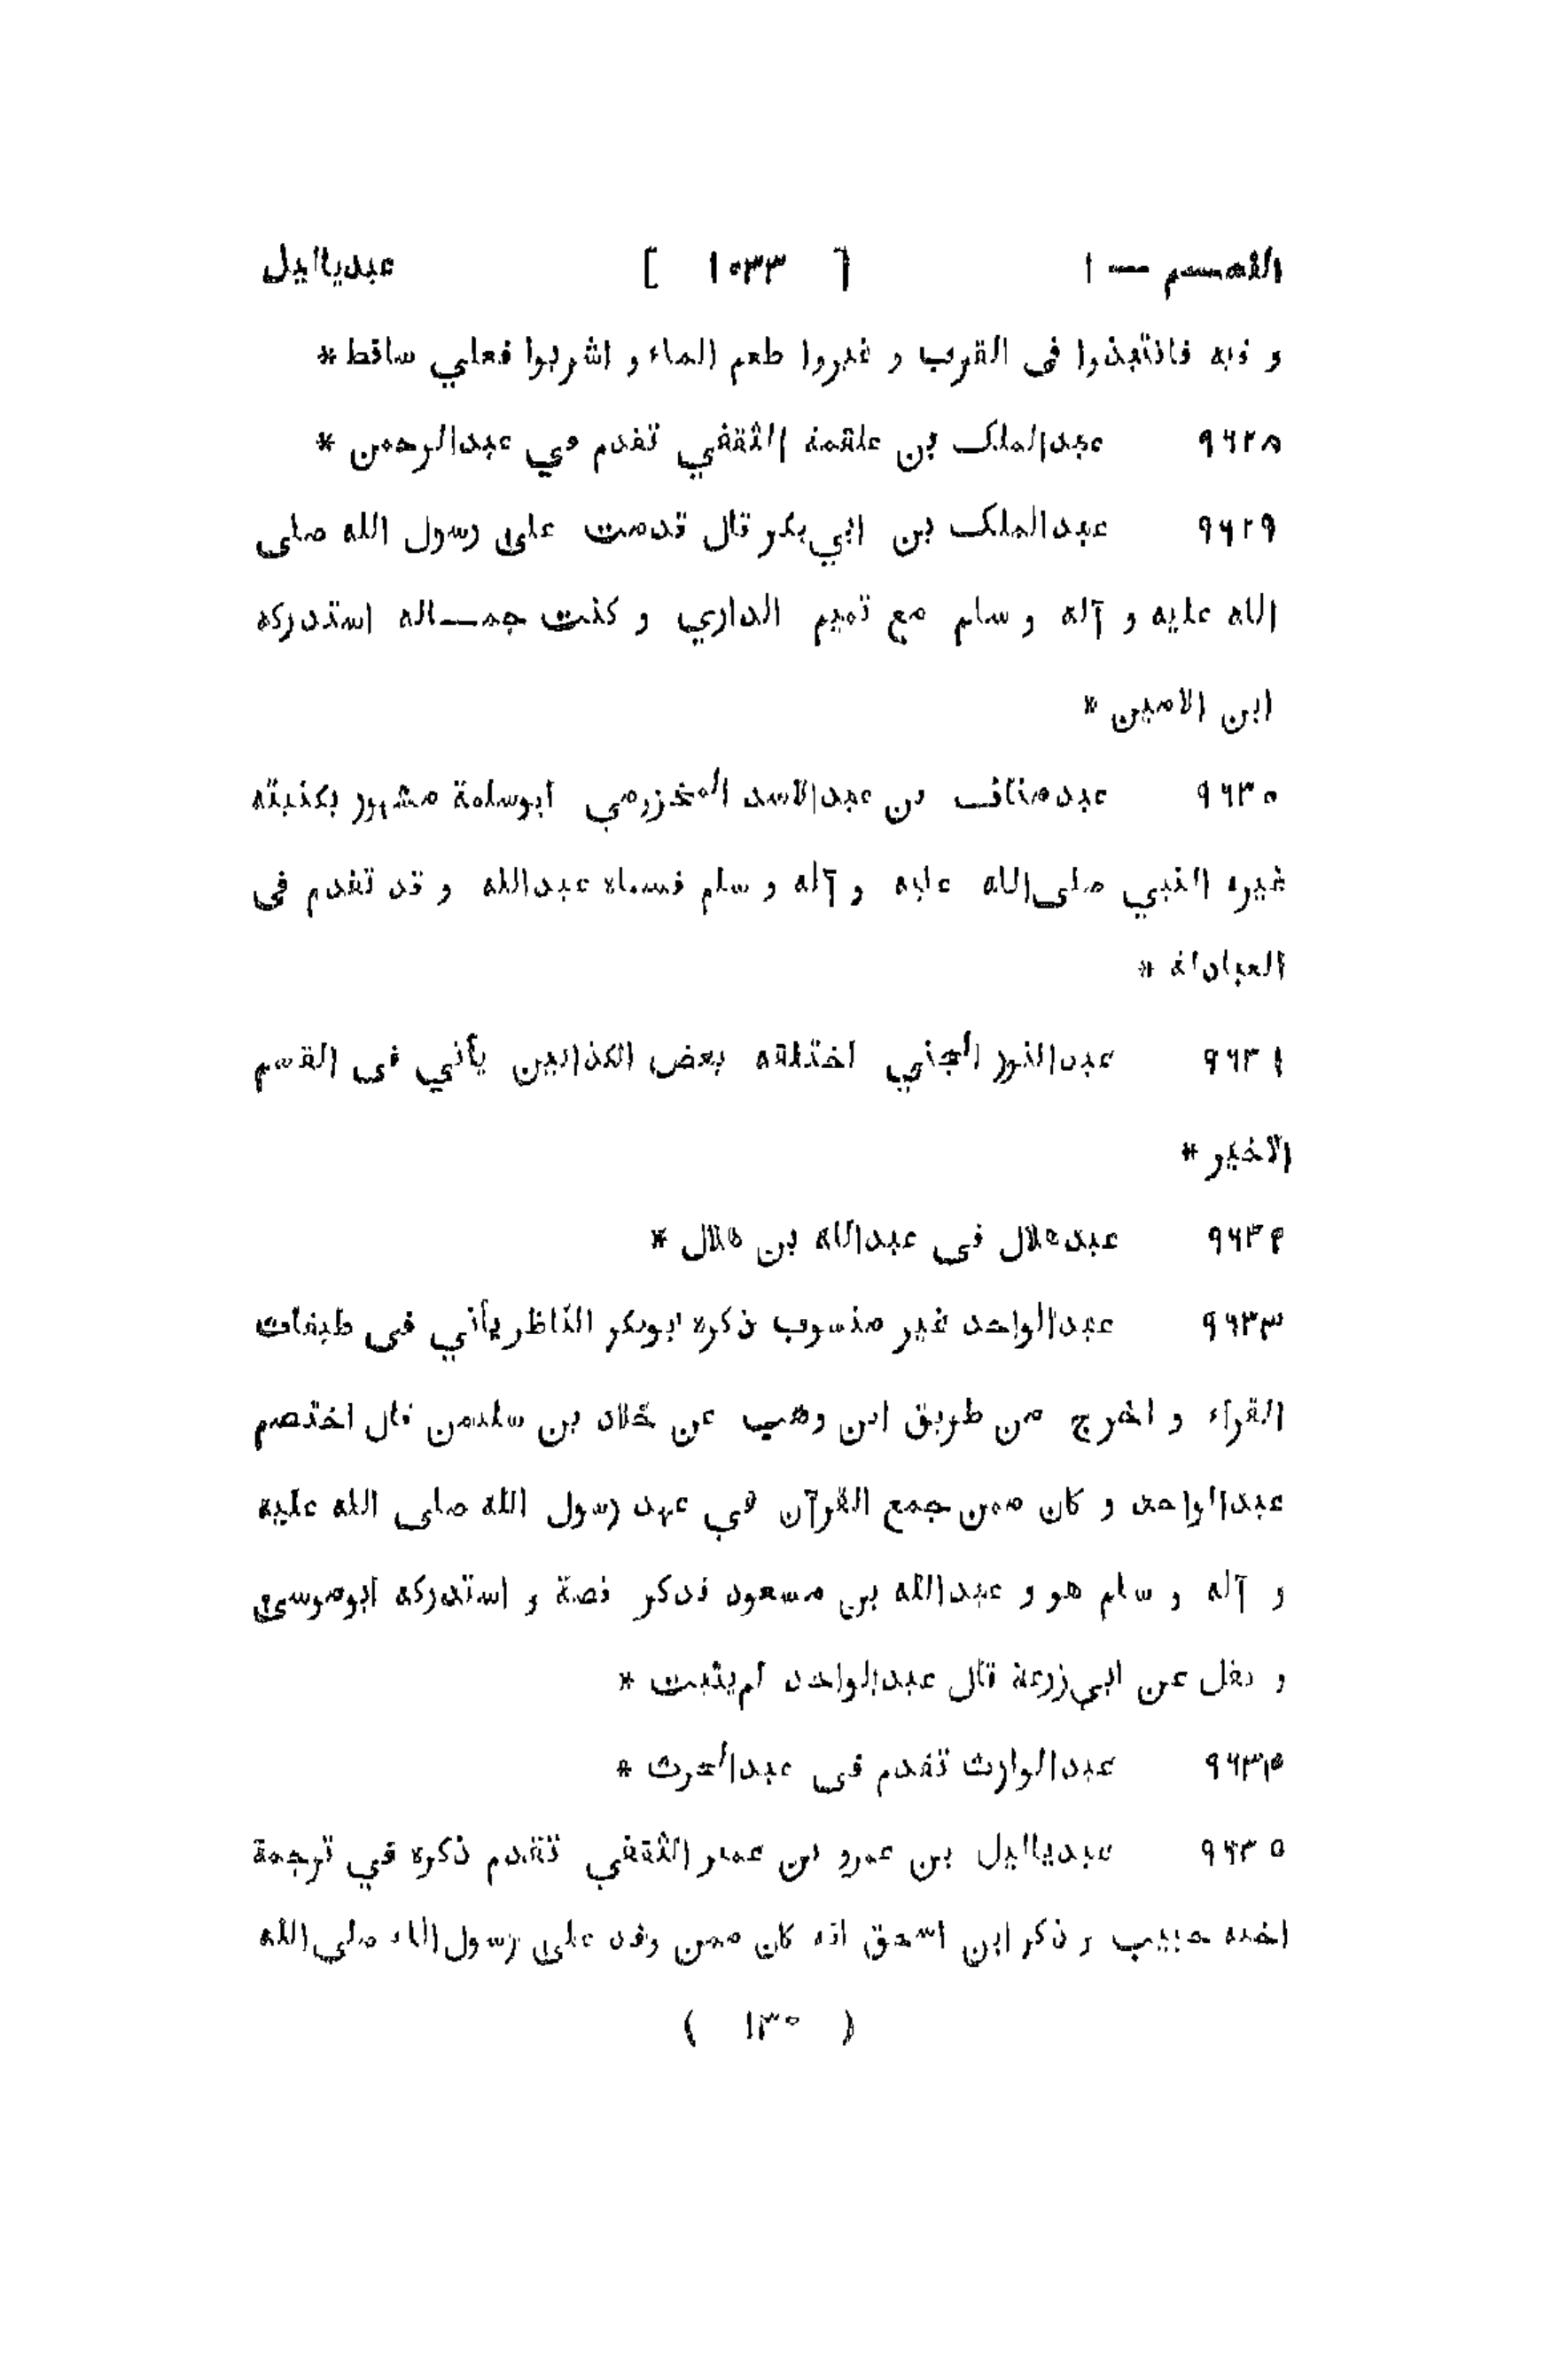 القسم — ١ [ ١٠٣٣ ] عبدياليل
و فيه فانتبذوا فى القرب و غيروا طعم الماء و اشربوا فعلي ساقط *
٩٦٢٨ عبدالملك بن علقمة الثقفي تقدم في عبدالرحمن *
٩٦٢٩ عبدالملك بن ابي بكر قال قدمت على رسول الله صلى
الله عليه و آله و سلم مع تميم الداري و كنت جمــاله استدركه
ابن الامين *
٩٦٣٠ عبدمناف بن عبدالاسد المخزومي ابوسلمة مشهور بكنيته
غيره النبي صلى الله عليه و آله و سلم فسماه عبدالله و قد تقدم فى
العبادلة *
٩٦٣١ عبدالنور الجني اختلقه بعض الكذابين يأتي فى القسم
الاخير *
٩٦٣٢ عبدهلال فى عبدالله بن هلال *
٩٦٣٣ عبدالواحد غير منسوب ذكره ابوبكر الناظر يأتي فى طبقات
القراء و اخرج من طريق ابن وهب عن خلاد بن سليمن قال اختصم
عبدالواحد و كان ممن جمع القرآن في عهد رسول الله صلى الله عليه
و آله و سلم هو و عبدالله بن مسعود فذكر قصة و استدركه ابوموسى
و نقل عن ابي زرعة قال عبدالواحد لم يثبت *
٩٦٣٤ عبدالوارث تقدم فى عبدالحرث *
٩٦٣٥ عبدياليل بن عمرو بن عمير الثقفي تقدم ذكره في ترجمة
اخيه حبيب و ذكر ابن اسحق انه كان ممن وفد على رسول الله صلي الله
( ١٣٠ )